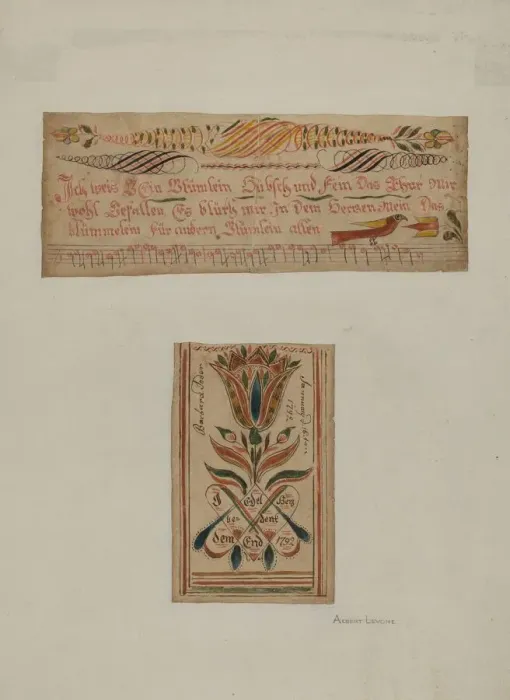 Ich weis Ein Blümlein Hübsch und Fein Das Thut Mir
wohl Gefallen Es blürh mir In Dem Hertzen Mein Das
blümmelein Für andern Blümlein allen
Barbara
1792
Edel Herz
be denk
dein End 1792
ALBERT LEVONE